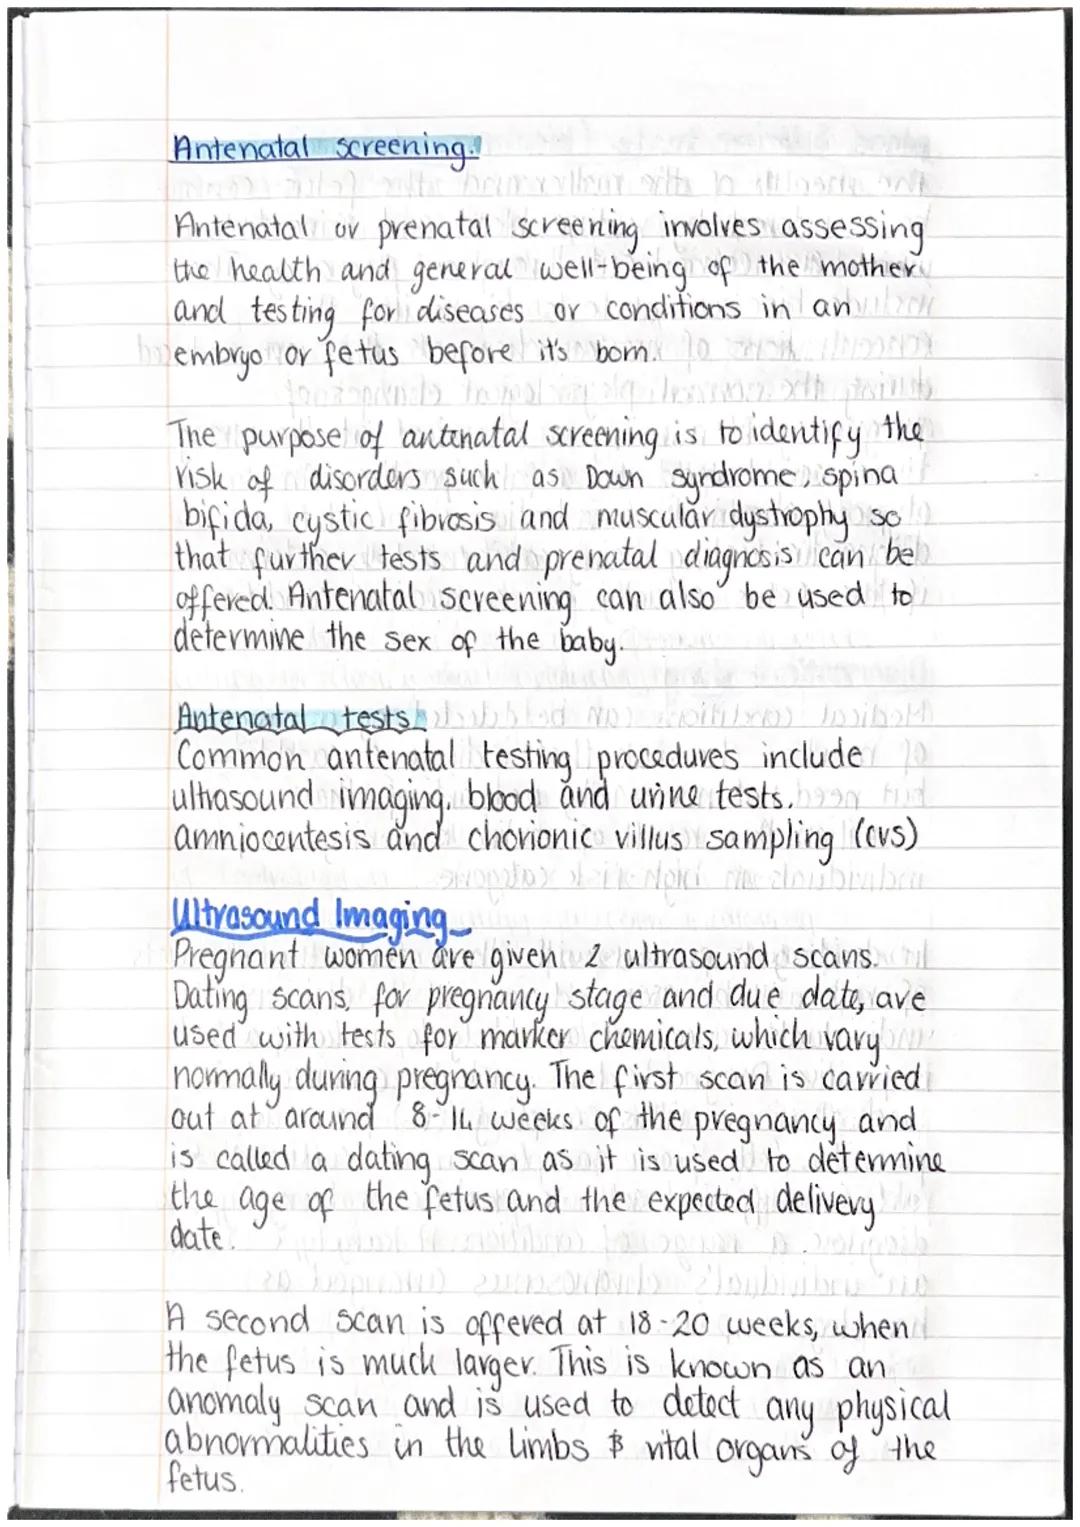 Antenatal screening.
Antenatal or prenatal screening involves assessing
the health and general well-being of the mother
and testing for diseases or conditions in an
embryo or fetus before it's born.
The purpose of antenatal screening is to identify the
risk of disorders such as Down syndrome, spina
bifida, cystic fibrosis and muscular dystrophy so
that further tests and prenatal diagnosis can be
offered. Antenatal screening can also be used to
determine the sex of the baby.
Antenatal tests
Common antenatal testing procedures include
ultrasound imaging, blood and urine tests.
amniocentesis and chorionic villus sampling (cvs)
Ultrasound Imaging
Pregnant women are given 2 ultrasound scans.
Dating scans, for pregnancy stage and due date, are
used with tests for marker chemicals, which vary
normally during pregnancy. The first scan is carried
out at around 8-14 weeks of the pregnancy and
is called a dating scan as it is used to determine
the age of the fetus and the expected delivery
date.
A second scan is offered at 18-20 weeks, when
the fetus is much larger. This is known as an
anomaly scan and is used to detect any physical
abnormalities in the limbs & vital organs of the
fetus.